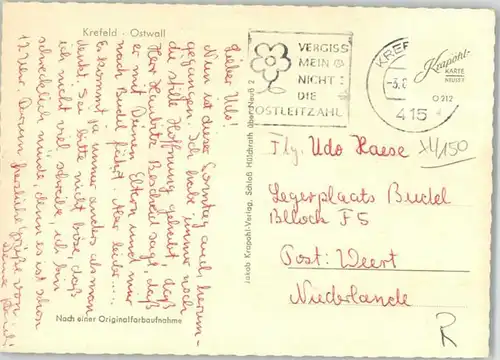 Krefeld - Ostwall
Lieber Udo!
Nun ist dieser Sonntag auch herum-
gegangen. Ich habe immer noch
die stille Hoffnung gehabt, daß
Herr Bescheid sagt, daß
er mit Deinen Eltern und mir
nach Budel fährt. Aber leider....
Es kommt ja immer anders als man
denkt. Sei bitte nicht böse, daß
ich nicht viel schreibe, ich bin
schrecklich müde, denn es ist schon
12 Uhr. Darum herzliche Grüße von
Deine
Nach einer Originalfarbaufnahme
Jakob Krapohl-Verlag, Schloß Hülchrath über Neuß 2
VERGISS
MEIN
NICHT
DIE
POSTLEITZAHL
KREF
-5.8
415
Krapohl-
KARTE
O 212
Flg. Udo Haese
XI/150
Legerplaats Budel
Bllock F5
Post: Weert
Niederlande
R